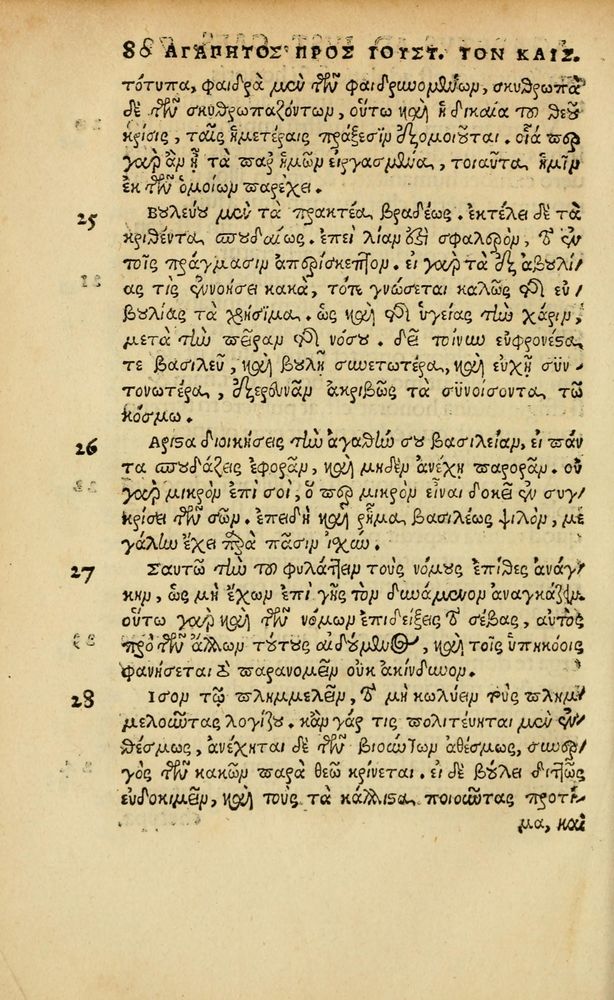 86 ΑΓΑΠΗΤΟΣ ΠΡΟΣ ΙΟΥΣΤ. ΤΟΝ ΚΑΙΣ.
τότυπα, φαιδρὰ μὲν τῶν φαιδρυνομένων, σκυθρωπὰ
δὲ τῶν σκυθρωπαζόντων, οὕτω καὶ ἡ δικαία τοῦ θεοῦ
κρίσις, ταῖς ἡμετέραις πράξεσιν ἐξομοιοῦται. οἷά περ
γὰρ ἂν ᾖ τὰ παρ' ἡμῶν εἰργασμένα, τοιαῦτα ἡμῖν
ἐκ τῶν ὁμοίων παρέχει.
25 Βουλεύου μὲν τὰ πρακτέα βραδέως. ἐκτέλει δὲ τὰ
κριθέντα σπουδαίως. ἐπεὶ λίαν ἐστὶ σφαλερὸν, τὸ ἐν
τοῖς πράγμασιν ἀπερίσκεπτον. εἰ γὰρ τὰ ἐξ ἀβουλί
ας τὶς ἐννοήσει κακὰ, τότε γνώσεται καλῶς τῆς εὐ
βουλίας τὰ χρήσιμα. ὡς καὶ τῆς ὑγείας τὴν χάριν,
μετὰ τὴν πεῖραν τῆς νόσου. δεῖ τοίνυν εὐφρονέστα
τε βασιλεῦ, καὶ βουλῇ συνετωτέρα, καὶ εὐχῇ συν
τονωτέρα, ἐξερευνᾶν ἀκριβῶς τὰ συνοίσοντα τῷ
κόσμω.
26 Αριστα διοικήσεις τὴν ἀγαθήν σου βασιλείαν, εἰ πάν
τα σπουδάζεις ἐφορᾶν, καὶ μηδὲν ἀνέχῃ παρορᾶν. οὐ
γὰρ μικρὸν ἐπὶ σοὶ, ὅ περ μικρὸν εἶναι δοκεῖ ἐν συγ
κρίσει τῶν σῶν. ἐπειδὴ καὶ ῥῆμα βασιλέως ψιλὸν, με
γάλην ἔχει παρὰ πᾶσιν ἰχύν.
27 Σαυτῷ τὴν τοῦ φυλάττειν τοὺς νόμους ἐπίθες ἀνάγ
κην, ὡς μὴ ἔχων ἐπὶ γῆς τὸν δυνάμενον ἀναγκάζειν.
οὕτω γὰρ καὶ τῶν νόμων ἐπιδείξεις τὸ σέβας, αὐτὸς
πρὸ τῶν ἄλλων τούτους αἰδούμενος, καὶ τοῖς ὑπηκόοις
φανήσεται τὸ παρανομεῖν οὐκ ἀκίνδυνον.
28 Ισον τῷ πλημμελεῖν, τὸ μὴ κωλύειν τοὺς πλημ
μελοῦντας λογίζου. κἂν γάρ τις πολιτεύηται μὲν ἐν
θέσμως, ἀνέχηται δὲ τῶν βιούντων ἀθέσμως, συνερ
γὸς τῶν κακῶν παρὰ θεῷ κρίνεται. εἰ δὲ βούλει διττῶς
εὐδοκιμεῖν, καὶ τοὺς τὰ κάλλιστα ποιοῦντας προτί
μα, καὶ